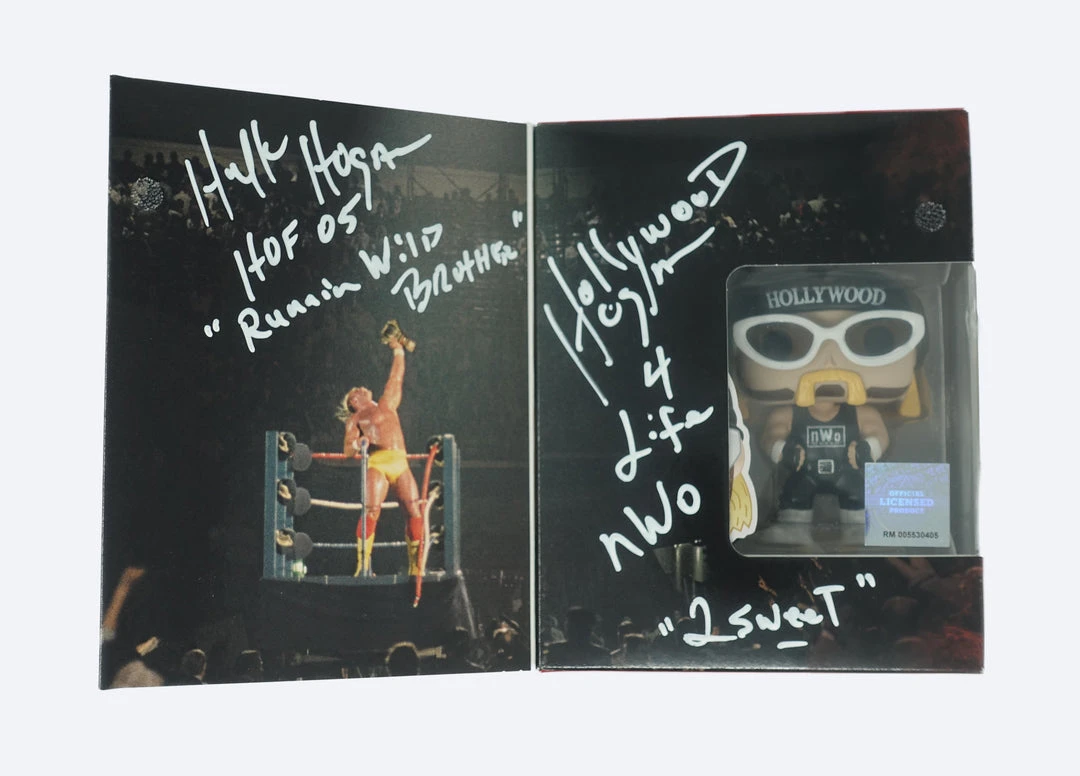 Hulk Hogan
HOF 05
"Runnin Wild
Brother"
Hollywood
Hogan
4
Life
nWo
"2 sweeT"
HOLLYWOOD
nWo
OFFICIAL
LICENSED
PRODUCT
RM 005530405